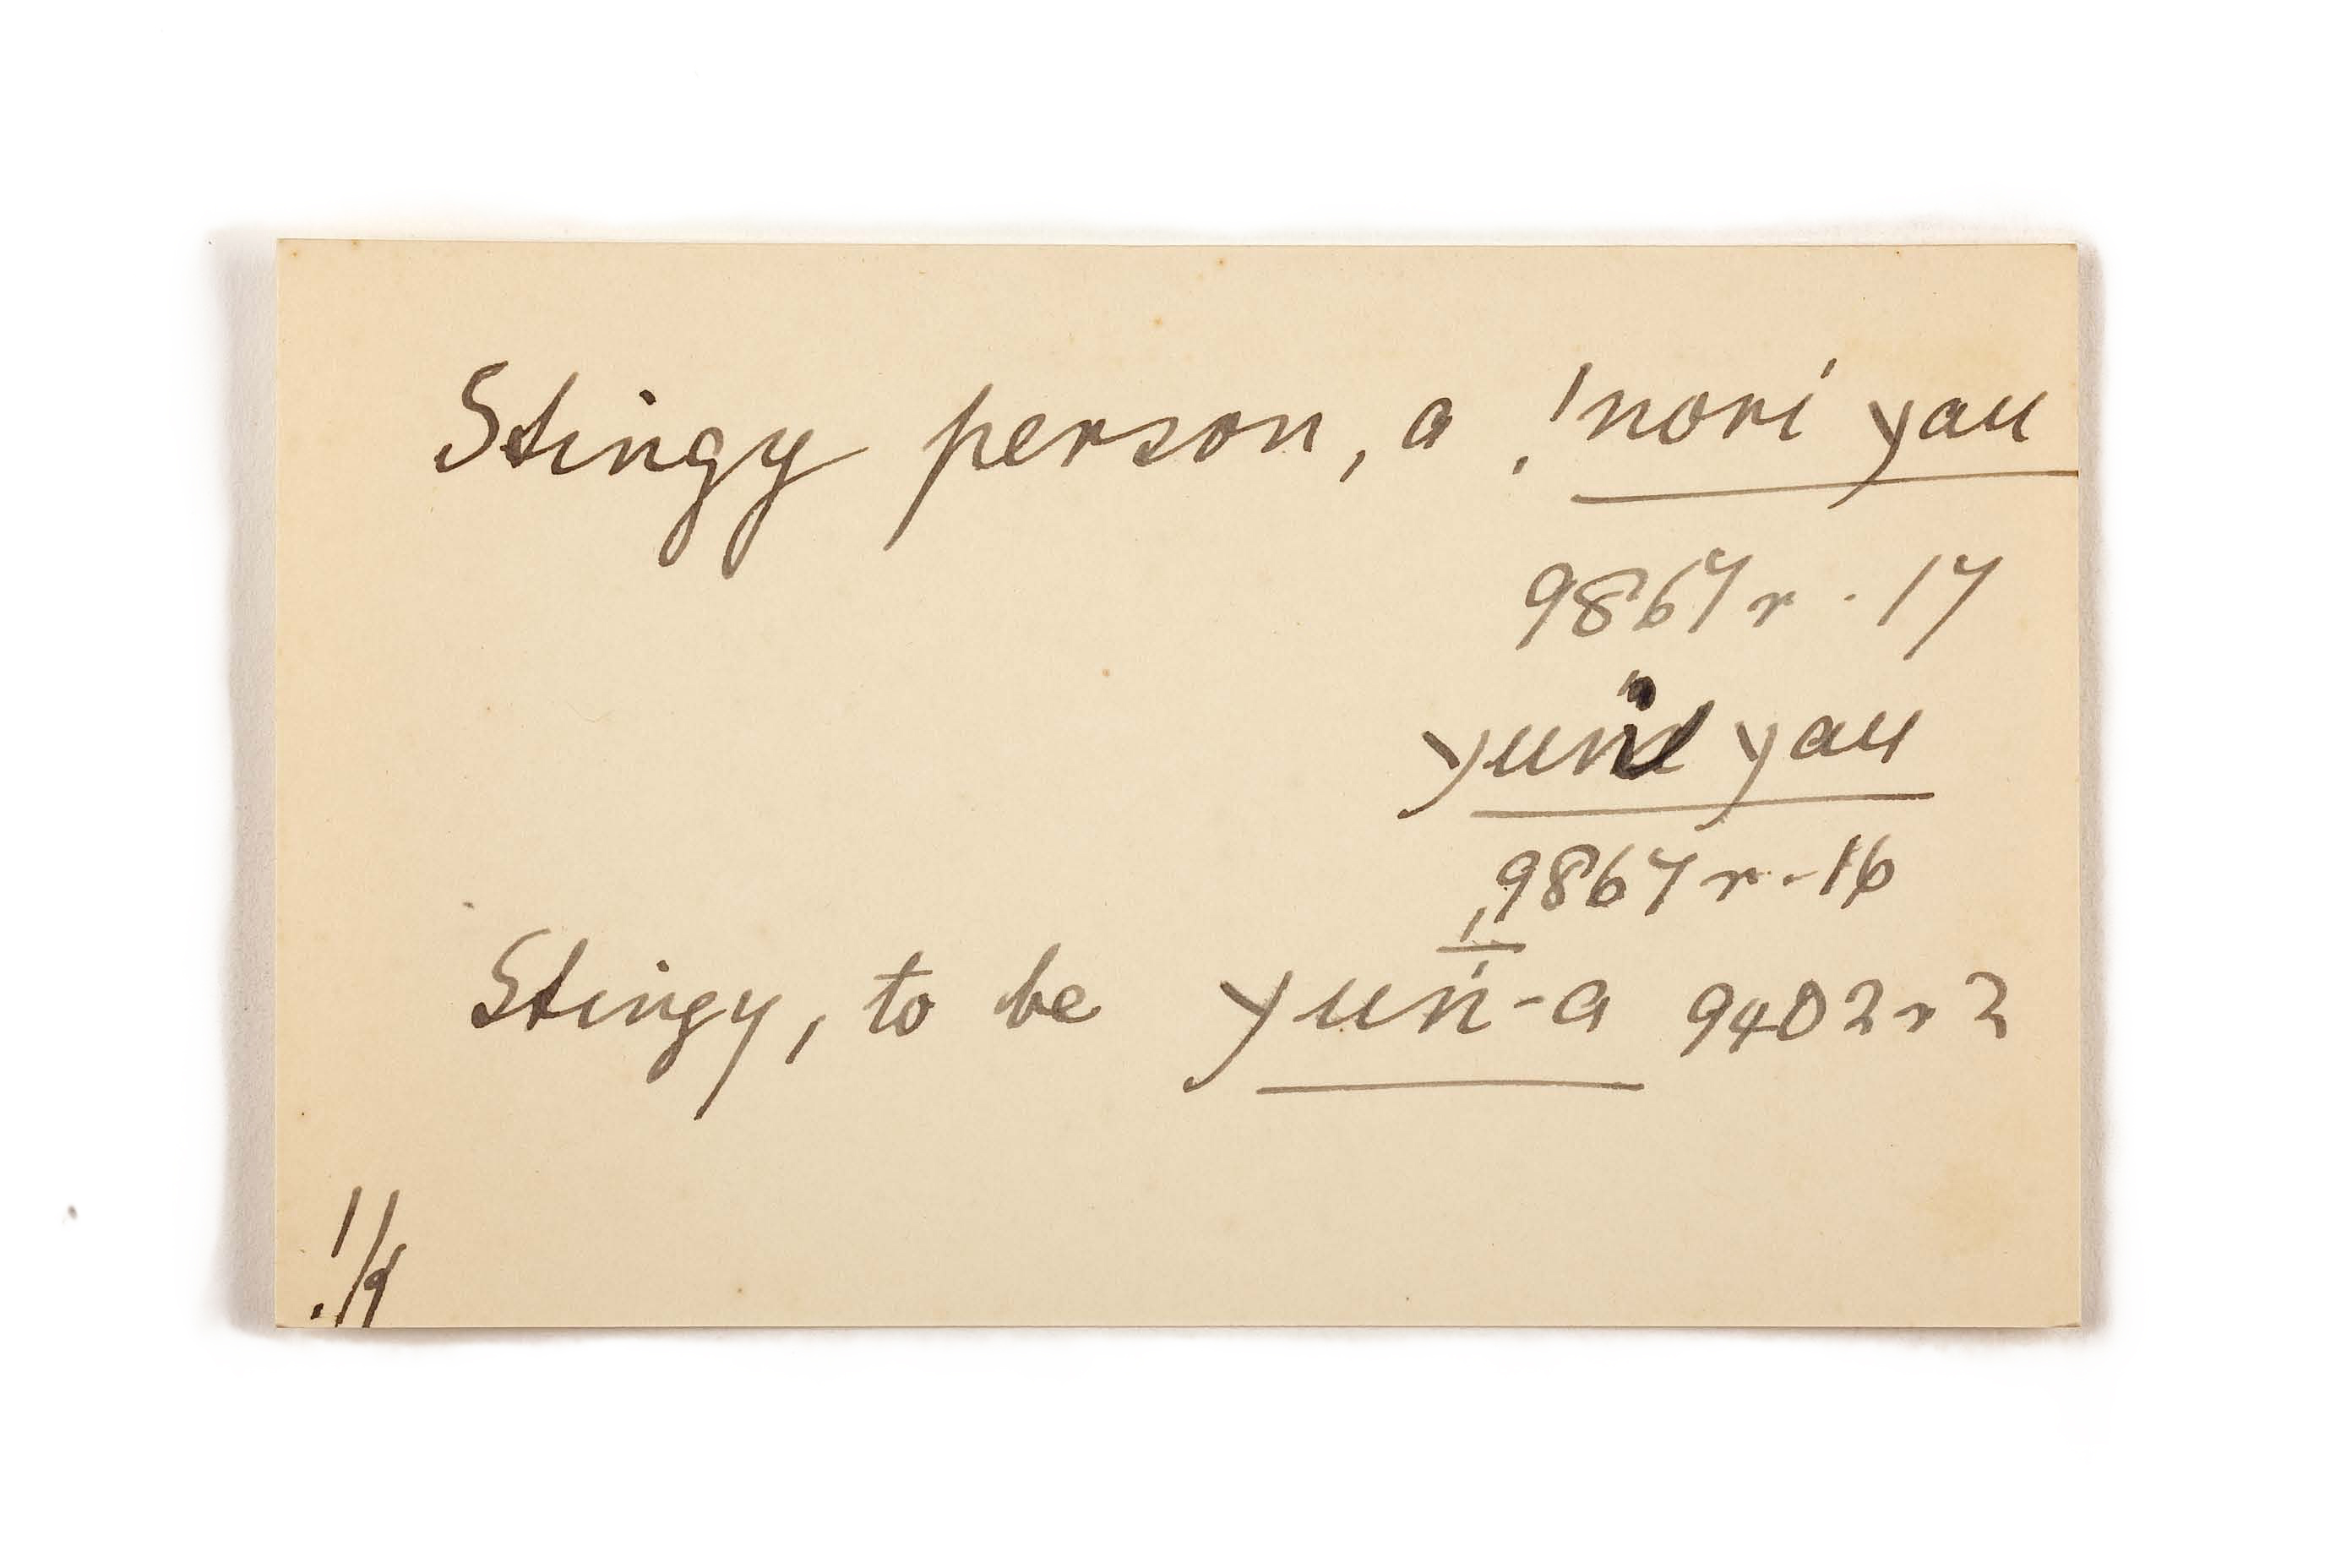 Stingy person, a !nori yau
9867 r. 17
yuni yau
9867 r. -16
Stingy, to be yun-a 9402 r 2